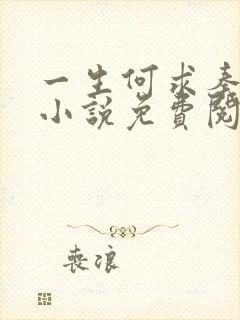 一生何求奏
小說免費閱
喪浪